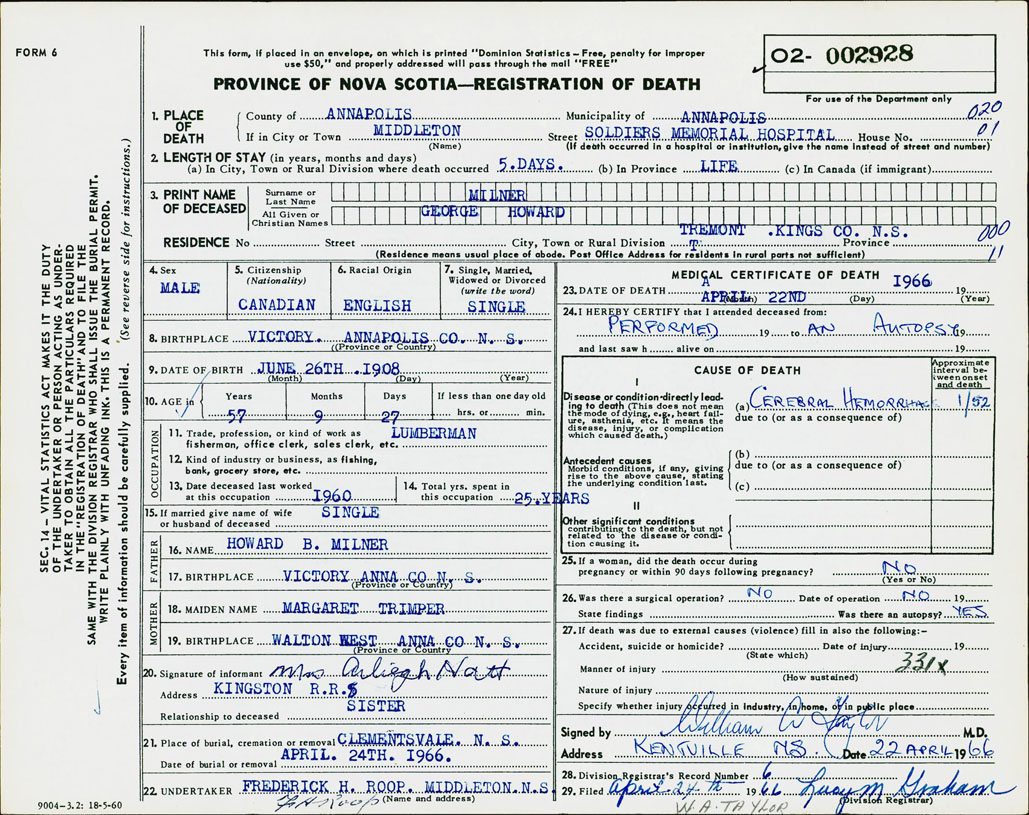 FORM 6
This form, if placed in an envelope, on which is printed "Dominion Statistics – Free, penalty for improper
use $50," and properly addressed will pass through the mail "FREE"
PROVINCE OF NOVA SCOTIA—REGISTRATION OF DEATH
02- 002928
For use of the Department only
SEC. 14 – VITAL STATISTICS ACT MAKES IT THE DUTY
OF THE UNDERTAKER OR PERSON ACTING AS UNDER-
TAKER TO OBTAIN ALL THE PARTICULARS REQUIRED
IN THE "REGISTRATION OF DEATH" AND TO FILE THE
SAME WITH THE DIVISION REGISTRAR WHO SHALL ISSUE THE BURIAL PERMIT.
WRITE PLAINLY WITH UNFADING INK. THIS IS A PERMANENT RECORD.
Every item of information should be carefully supplied. (See reverse side for instructions.)
1. PLACE OF DEATH
County of ANNAPOLIS Municipality of ANNAPOLIS 020
If in City or Town MIDDLETON Street SOLDIERS MEMORIAL HOSPITAL House No. 01
(Name) (If death occurred in a hospital or institution, give the name instead of street and number)
2. LENGTH OF STAY (in years, months and days)
(a) In City, Town or Rural Division where death occurred 5.DAYS. (b) In Province LIFE (c) In Canada (if immigrant)
3. PRINT NAME OF DECEASED
Surname or Last Name MILNER
All Given or Christian Names GEORGE HOWARD
TREMONT .KINGS CO. N.S. 000
RESIDENCE No Street City, Town or Rural Division T Province 11
(Residence means usual place of abode. Post Office Address for residents in rural parts not sufficient)
4. Sex MALE
5. Citizenship (Nationality) CANADIAN
6. Racial Origin ENGLISH
7. Single, Married, Widowed or Divorced (write the word) SINGLE
8. BIRTHPLACE VICTORY. ANNAPOLIS CO. N. S.
(Province or Country)
9. DATE OF BIRTH JUNE 26TH .1908
(Month) (Day) (Year)
10. AGE in Years 57 Months 9 Days 27 If less than one day old hrs. or min.
OCCUPATION
11. Trade, profession, or kind of work as LUMBERMAN
fisherman, office clerk, sales clerk, etc.
12. Kind of industry or business, as fishing,
bank, grocery store, etc.
13. Date deceased last worked at this occupation 1960
14. Total yrs. spent in this occupation 25.YEARS
15. If married give name of wife or husband of deceased SINGLE
FATHER
16. NAME HOWARD B. MILNER
17. BIRTHPLACE VICTORY ANNA CO N. S.
(Province or Country)
MOTHER
18. MAIDEN NAME MARGARET TRIMPER
19. BIRTHPLACE WALTON WEST ANNA CO N. S.
(Province or Country
20. Signature of informant Mrs
Address KINGSTON R.R.5
Relationship to deceased SISTER
21. Place of burial, cremation or removal CLEMENTSVALE. N. S.
Date of burial or removal APRIL. 24TH. 1966.
22. UNDERTAKER FREDERICK H. ROOP. MIDDLETON.N.S.
(Name and address)
F H Roop
9004–3.2: 18-5-60
MEDICAL CERTIFICATE OF DEATH
A
23. DATE OF DEATH APRIL 22ND 1966
(Month) (Day) (Year)
24. I HEREBY CERTIFY that I attended deceased from:
PERFORMED 19 to AN AUTOPSY 19
and last saw h alive on 19
CAUSE OF DEATH
Approximate interval between onset and death
I
Disease or condition directly leading to death (This does not mean the mode of dying, e.g., heart failure, asthenia, etc. It means the disease, injury, or complication which caused death.)
(a) CEREBRAL HEMORRHAGE 1/52
due to (or as a consequence of)
Antecedent causes
Morbid conditions, if any, giving rise to the above cause, stating the underlying condition last.
(b)
due to (or as a consequence of)
(c)
II
Other significant conditions
contributing to the death, but not related to the disease or condition causing it.
25. If a woman, did the death occur during
pregnancy or within 90 days following pregnancy? NO
(Yes or No)
26. Was there a surgical operation? NO Date of operation NO 19
State findings Was there an autopsy? YES
27. If death was due to external causes (violence) fill in also the following:–
Accident, suicide or homicide? Date of injury 19
(State which)
Manner of injury 331X
(How sustained)
Nature of injury
Specify whether injury occurred in industry, in home, or in public place
Signed by William A Taylor M.D.
Address KENTVILLE NS. Date 22 APRIL 1966
28. Division Registrar's Record Number 6
29. Filed April 24th 1966 Lucy M Graham
(Division Registrar)
W.A. TAYLOR